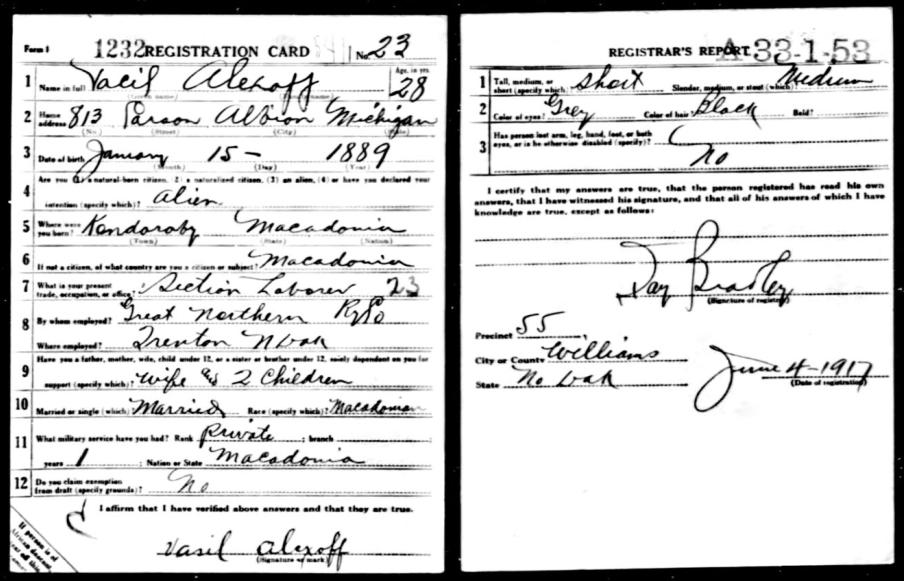 Form 1 1232 REGISTRATION CARD No. 23
1 Name in full Vacil Alexoff Age, in yrs. 28
2 Home address 813 Parson Albion Michigan
(No.) (Street) (City) (State)
3 Date of birth January 15 - 1889
(Month) (Day) (Year)
4 Are you (1) a natural-born citizen, (2) a naturalized citizen, (3) an alien, (4) or have you declared your
intention (specify which)? Alien
5 Where were you born? Kendoroby Macadonia
(Town) (State) (Nation)
6 If not a citizen, of what country are you a citizen or subject? Macadonia
7 What is your present trade, occupation, or office? Section Laborer 23
8 By whom employed? Great Northern Ry Co
Where employed? Trenton N Dak
9 Have you a father, mother, wife, child under 12, or a sister or brother under 12, solely dependent on you for
support (specify which)? Wife & 2 Children
10 Married or single (which)? Married Race (specify which)? Macadonian
11 What military service have you had? Rank Private ; branch ;
years 1 ; Nation or State Macadonia
12 Do you claim exemption from draft (specify grounds)? No
I affirm that I have verified above answers and that they are true.
Vasil Alexoff
(Signature or mark)
If person is of
African descent,
REGISTRAR'S REPORT A 33-1-53
1 Tall, medium, or short (specify which)? Short Slender, medium, or stout (which)? Medium
2 Color of eyes? Grey Color of hair? Black Bald?
3 Has person lost arm, leg, hand, foot, or both
eyes, or is he otherwise disabled (specify)?
No
I certify that my answers are true, that the person registered has read his own
answers, that I have witnessed his signature, and that all of his answers of which I have
knowledge are true, except as follows:
Day Bradley
(Signature of registrar)
Precinct 55
City or County Williams
State No Dak June 4 - 1917
(Date of registration)